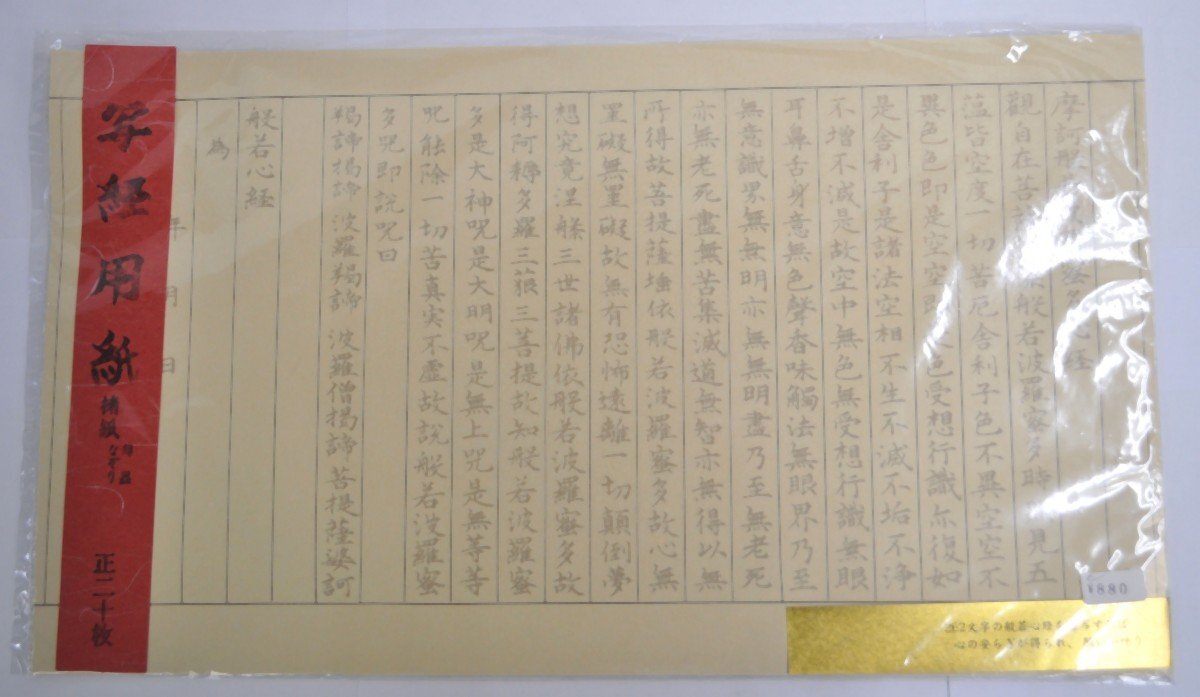 摩訶般若波羅蜜多心経
觀自在菩薩行深般若波羅蜜多時照見五
蘊皆空度一切苦厄舍利子色不異空空不
異色色即是空空即是色受想行識亦復如
是舍利子是諸法空相不生不滅不垢不浄
不增不減是故空中無色無受想行識無眼
耳鼻舌身意無色聲香味觸法無眼界乃至
無意識界無無明亦無無明盡乃至無老死
亦無老死盡無苦集滅道無智亦無得以無
所得故菩提薩埵依般若波羅蜜多故心無
罣礙無罣礙故無有恐怖遠離一切顛倒夢
想究竟涅槃三世諸佛依般若波羅蜜多故
得阿耨多羅三藐三菩提故知般若波羅蜜
多是大神呪是大明呪是無上呪是無等等
呪能除一切苦真実不虛故説般若波羅蜜
多呪即説呪曰
羯諦揭諦 波羅羯諦 波羅僧揭諦 菩提薩婆訶
般若心経
為
年 月 日
写経用紙
楮紙
なぞり
正二十枚
¥880
心の安らぎが得られ、